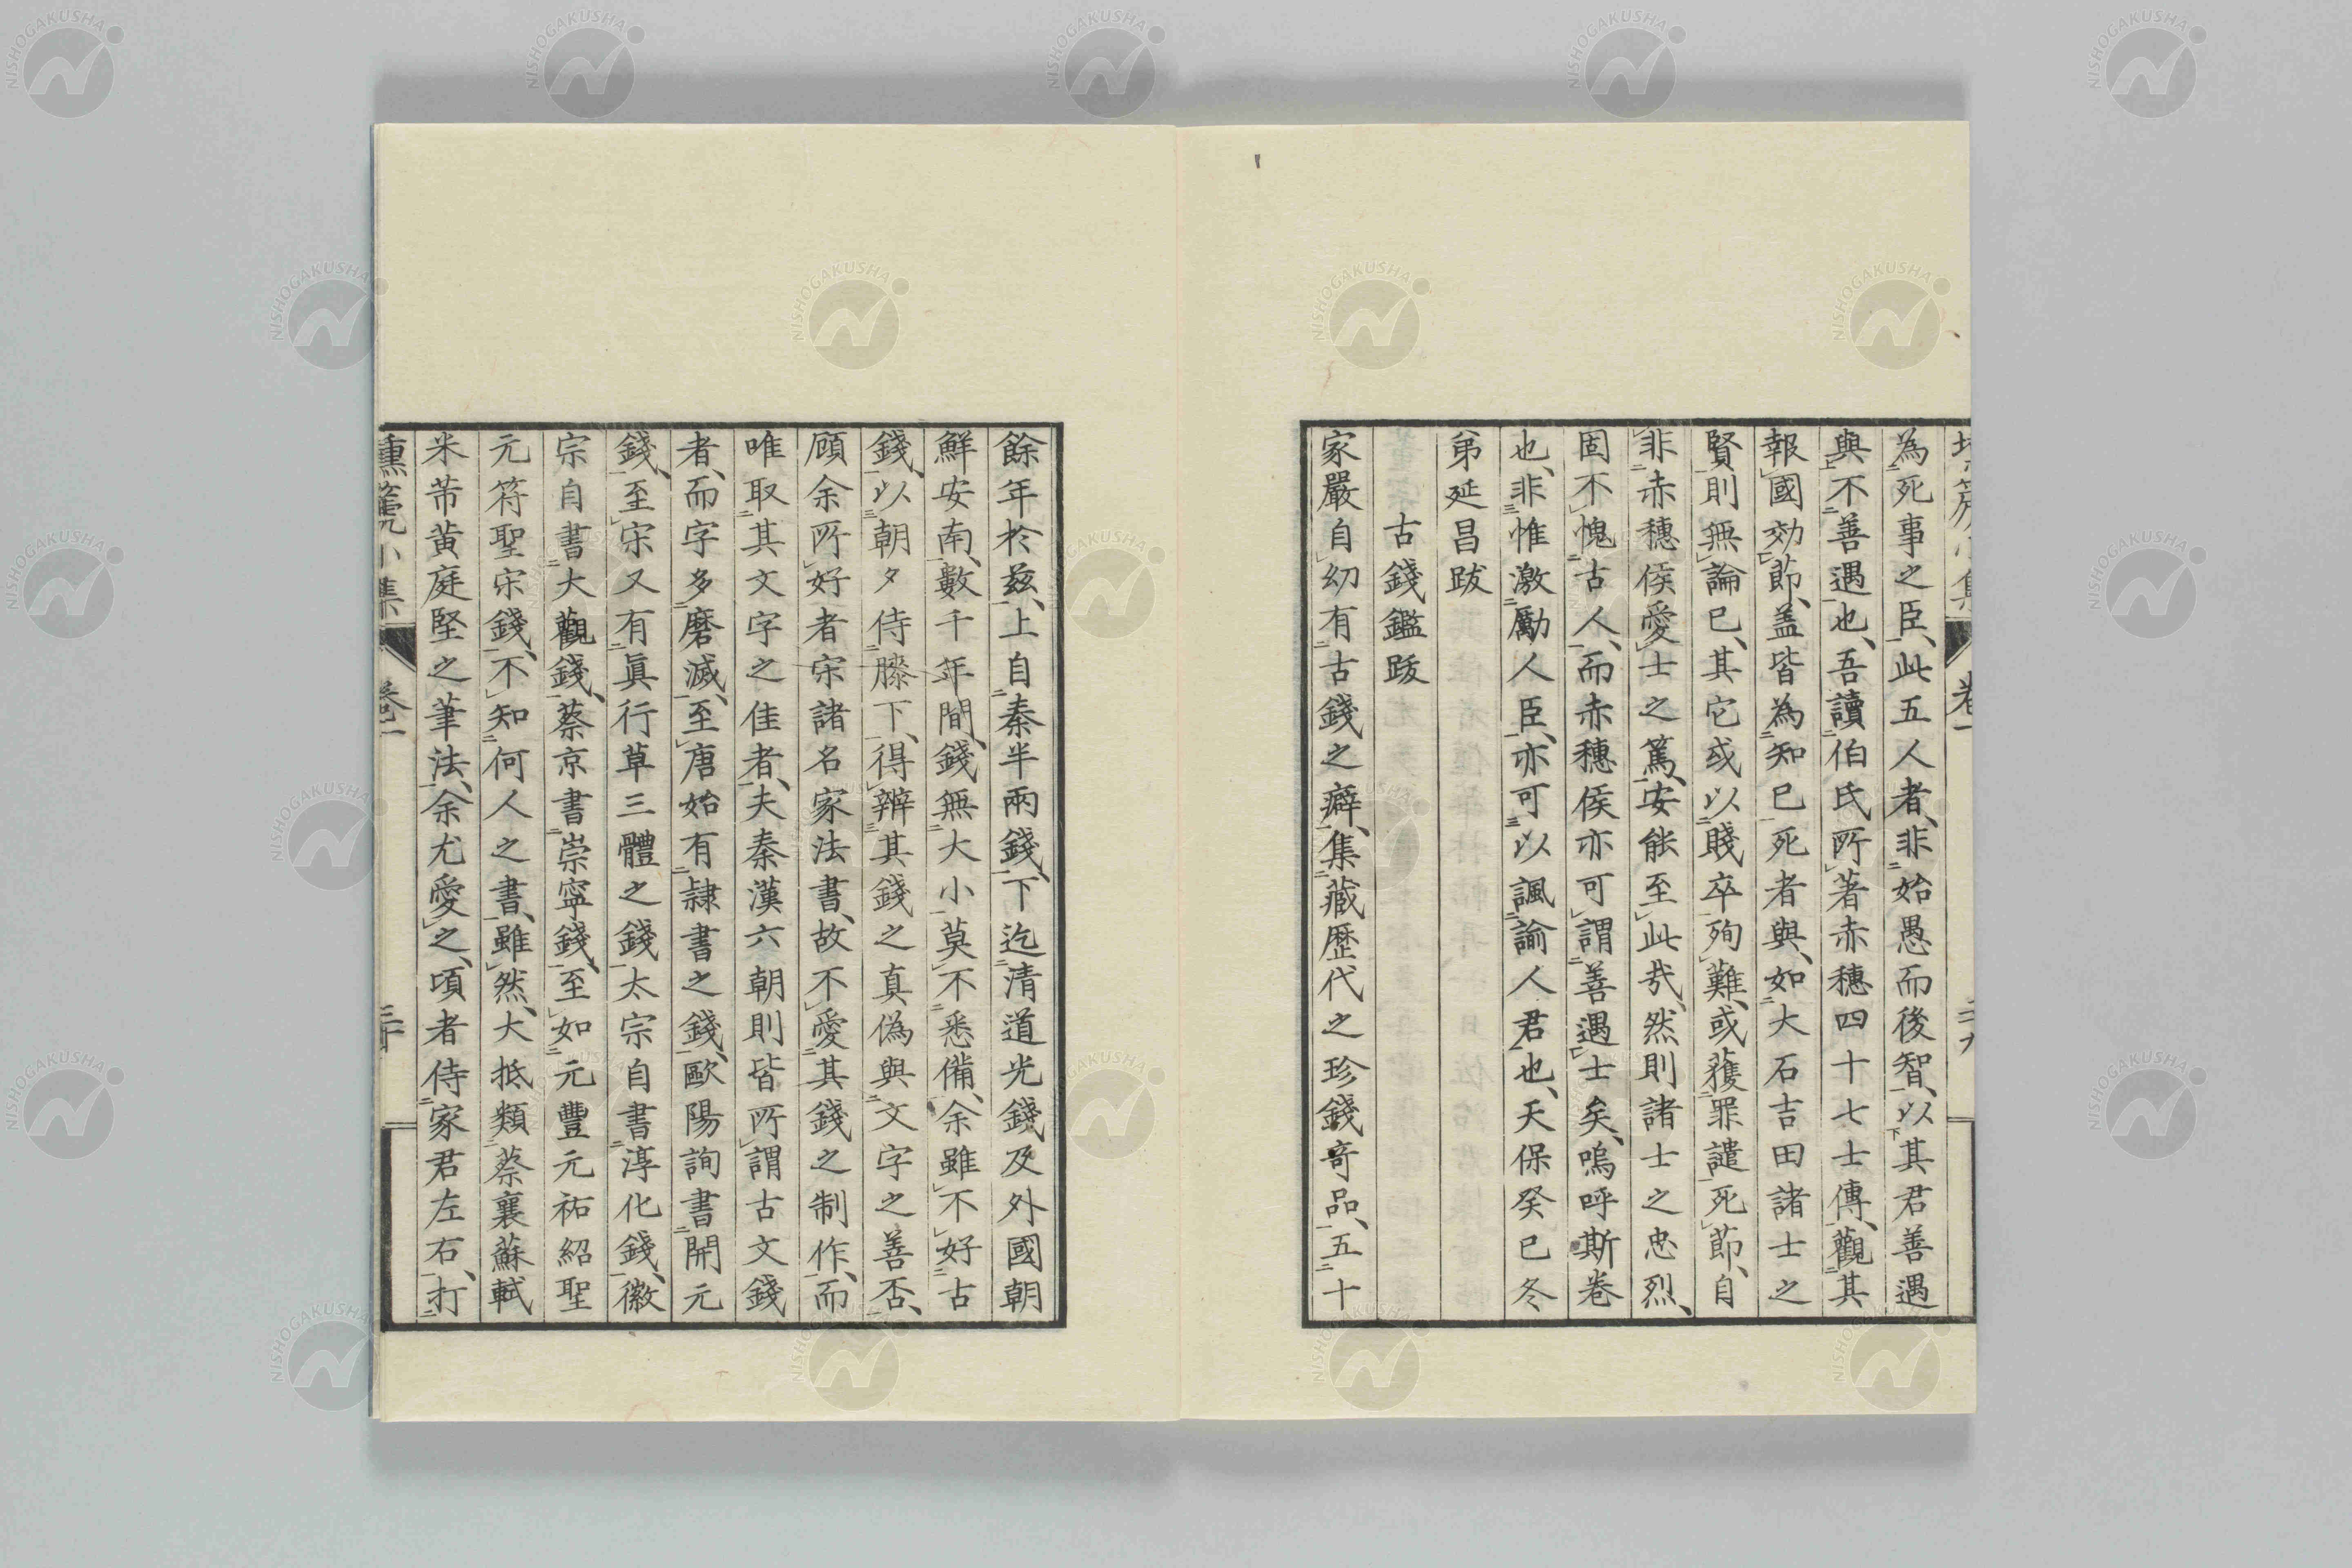 為死事之臣、此五人者、非始愚而後智、以其君善遇
與不善遇也、吾讀伯氏所著赤穗四十七士傳、觀其
報國効節、盖皆為知已死者與、如大石吉田諸士之
賢、則無論已、其它或以賤卒殉難、或獲罪譴死節、自
非赤穗侯愛士之篤、安能至此哉、然則諸士之忠烈、
固不愧古人、而赤穗侯亦可謂善遇士矣、嗚呼斯卷
也、非惟激勵人臣、亦可以諷諭人君也、天保癸巳冬
弟延昌跋
古錢鑑跋
家嚴自幼有古錢之癖、集藏歴代之珍錢竒品、五十
餘年於兹、上自秦半兩錢、下迄清道光錢及外國朝
鮮安南、數千年間、錢無大小莫不悉備、余雖不好古
錢、以朝夕侍膝下、得辨其錢之真偽與文字之善否、
顧余所好者宋諸名家法書、故不愛其錢之制作、而
唯取其文字之佳者、夫秦漢六朝則皆所謂古文錢
者、而字多磨滅、至唐始有隷書之錢、歐陽詢書開元
錢、至宋又有眞行草三體之錢、太宗自書淳化錢、徽
宗自書大觀錢、蔡京書崇寧錢、至如元豐元祐紹聖
元符聖宋錢、不知何人之書、雖然、大抵類蔡襄蘇軾
米芾黄庭堅之筆法、余尤愛之、頃者侍家君左右、打
壎篪小集 卷一 三十